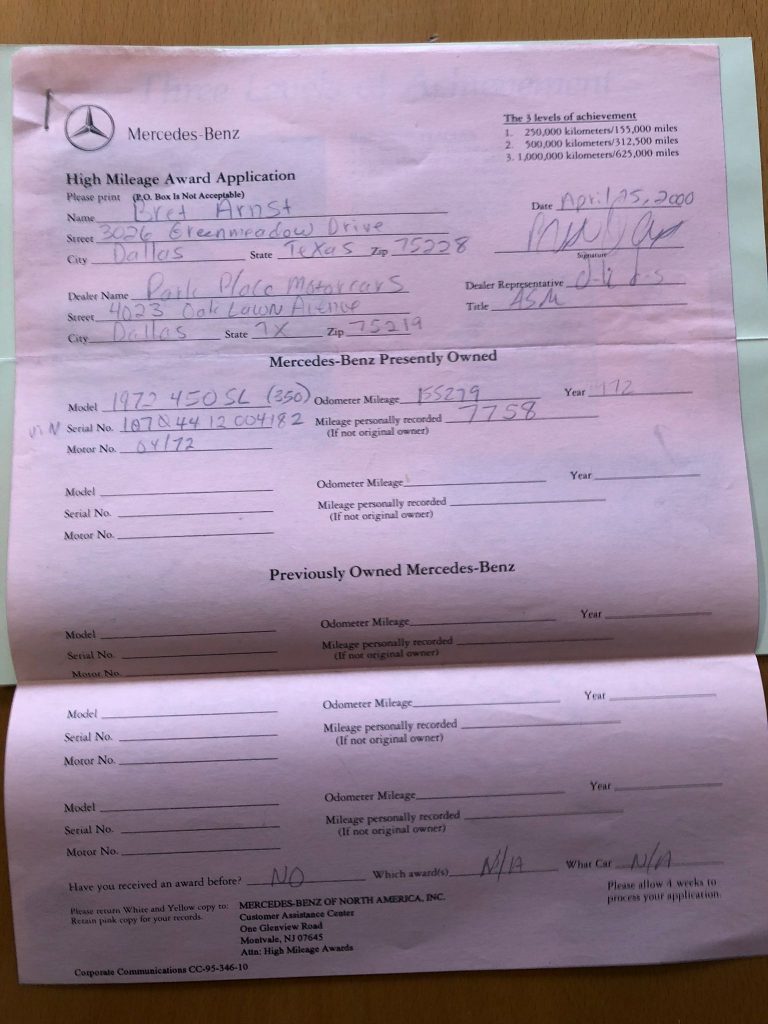 The 3 levels of achievement
1. 250,000 kilometers/155,000 miles
2. 500,000 kilometers/312,500 miles
3. 1,000,000 kilometers/625,000 miles
Mercedes-Benz
High Mileage Award Application
Please print (P.O. Box Is Not Acceptable)
Name Bret Arnst Date April 25, 2000
Street 3026 Greenmeadow Drive
City Dallas State Texas Zip 75228 Signature
Dealer Name Park Place Motorcars Dealer Representative
Street 4023 Oak Lawn Avenue Title ASM
City Dallas State TX Zip 75219
Mercedes-Benz Presently Owned
Model 1972 450 SL (350) Odometer Mileage 155279 Year 1972
VIN Serial No. 107044 12 004182 Mileage personally recorded 7758
(If not original owner)
Motor No. 04/72
Model Odometer Mileage Year
Serial No. Mileage personally recorded
(If not original owner)
Motor No.
Previously Owned Mercedes-Benz
Model Odometer Mileage Year
Serial No. Mileage personally recorded
(If not original owner)
Motor No.
Model Odometer Mileage Year
Serial No. Mileage personally recorded
(If not original owner)
Motor No.
Model Odometer Mileage Year
Serial No. Mileage personally recorded
(If not original owner)
Motor No.
Have you received an award before? NO Which award(s) N/A What Car N/A
Please return White and Yellow copy to:
Retain pink copy for your records.
MERCEDES-BENZ OF NORTH AMERICA, INC.
Customer Assistance Center
One Glenview Road
Montvale, NJ 07645
Attn: High Mileage Awards
Please allow 4 weeks to
process your application
Corporate Communications CC-95-346-10